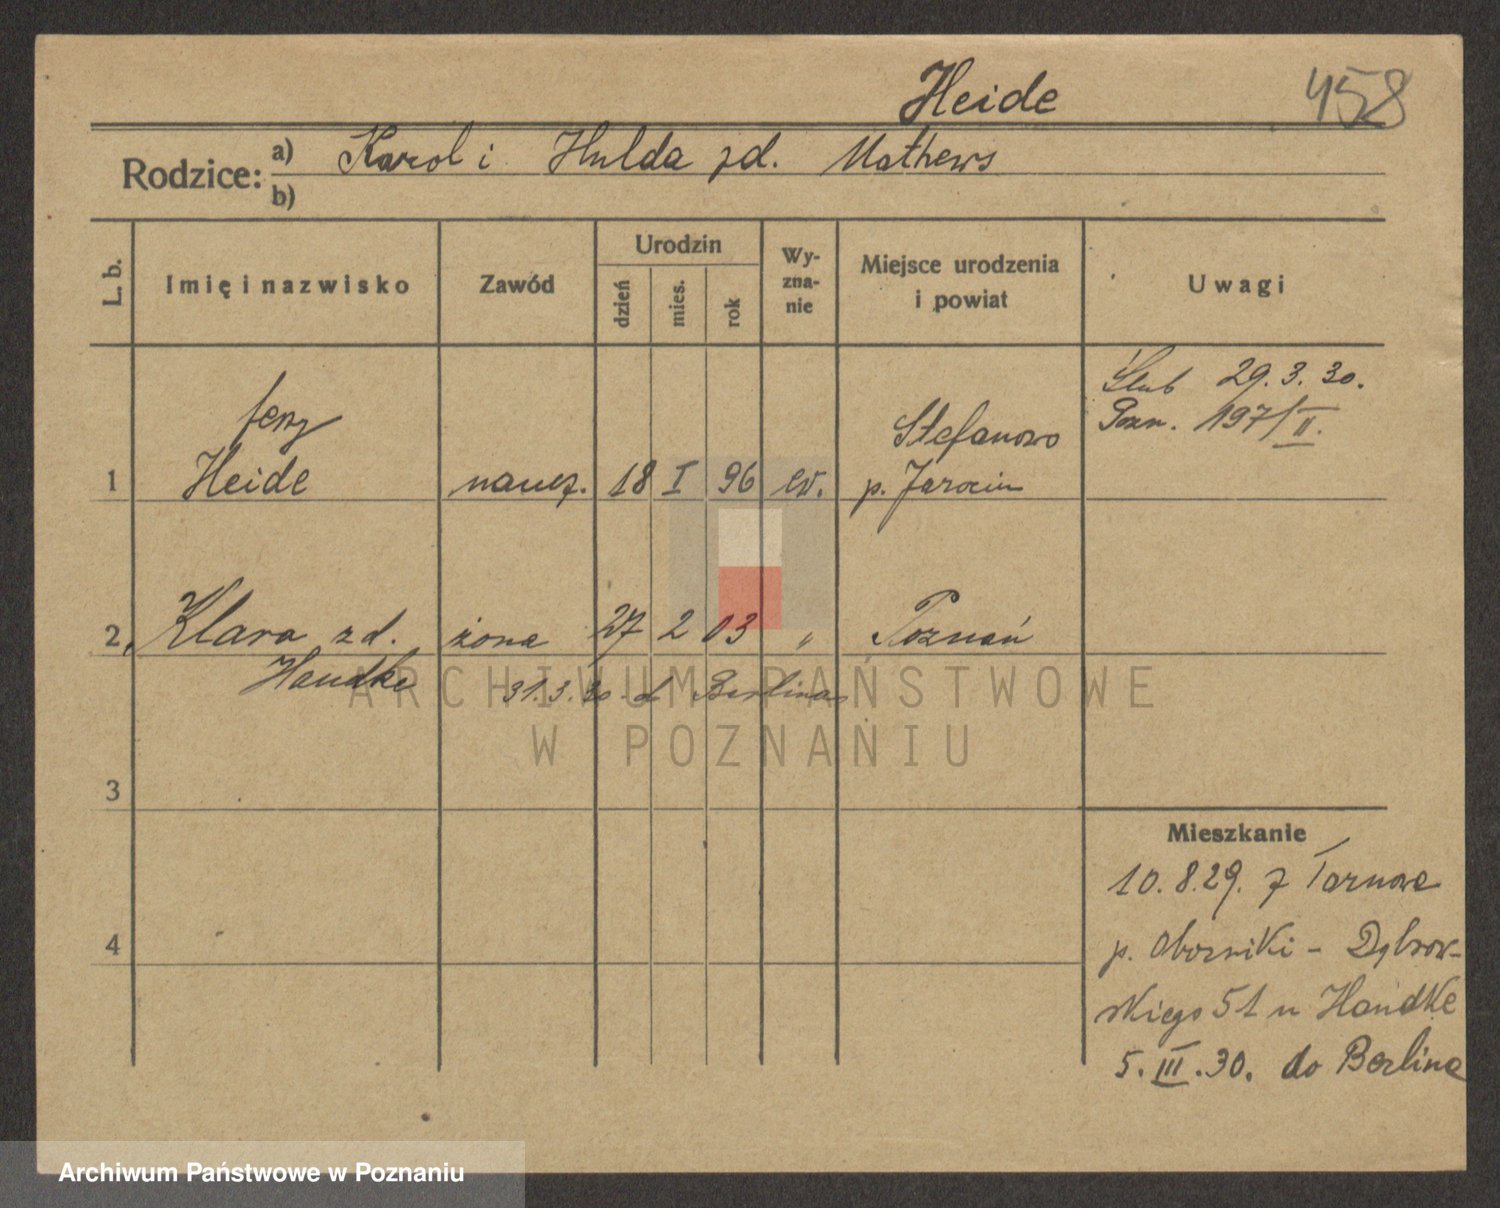 Heide
458
Rodzice:
a) Karol i Hulda zd. Mathews
b)
L. b.
Imię i nazwisko
Zawód
Urodzin
dzień
mies.
rok
Wy-
zna-
nie
Miejsce urodzenia
i powiat
Uwagi
Ślub 29.3.30.
Pozn. 197/II.
Jerzy
Stefanowo
1 Heide naucz. 18 I 96 ew. p. Jarocin
2, Klara zd. żona 27 2 03 " Poznań
Handke 31.3.30 d Berlina
3
4
Mieszkanie
10.8.29. z Tarnowa
p. Oborniki - Dąbrow-
skiego 51 u Handke
5.III.30. do Berlina
ARCHIWUM PAŃSTWOWE
W POZNANIU
Archiwum Państwowe w Poznaniu